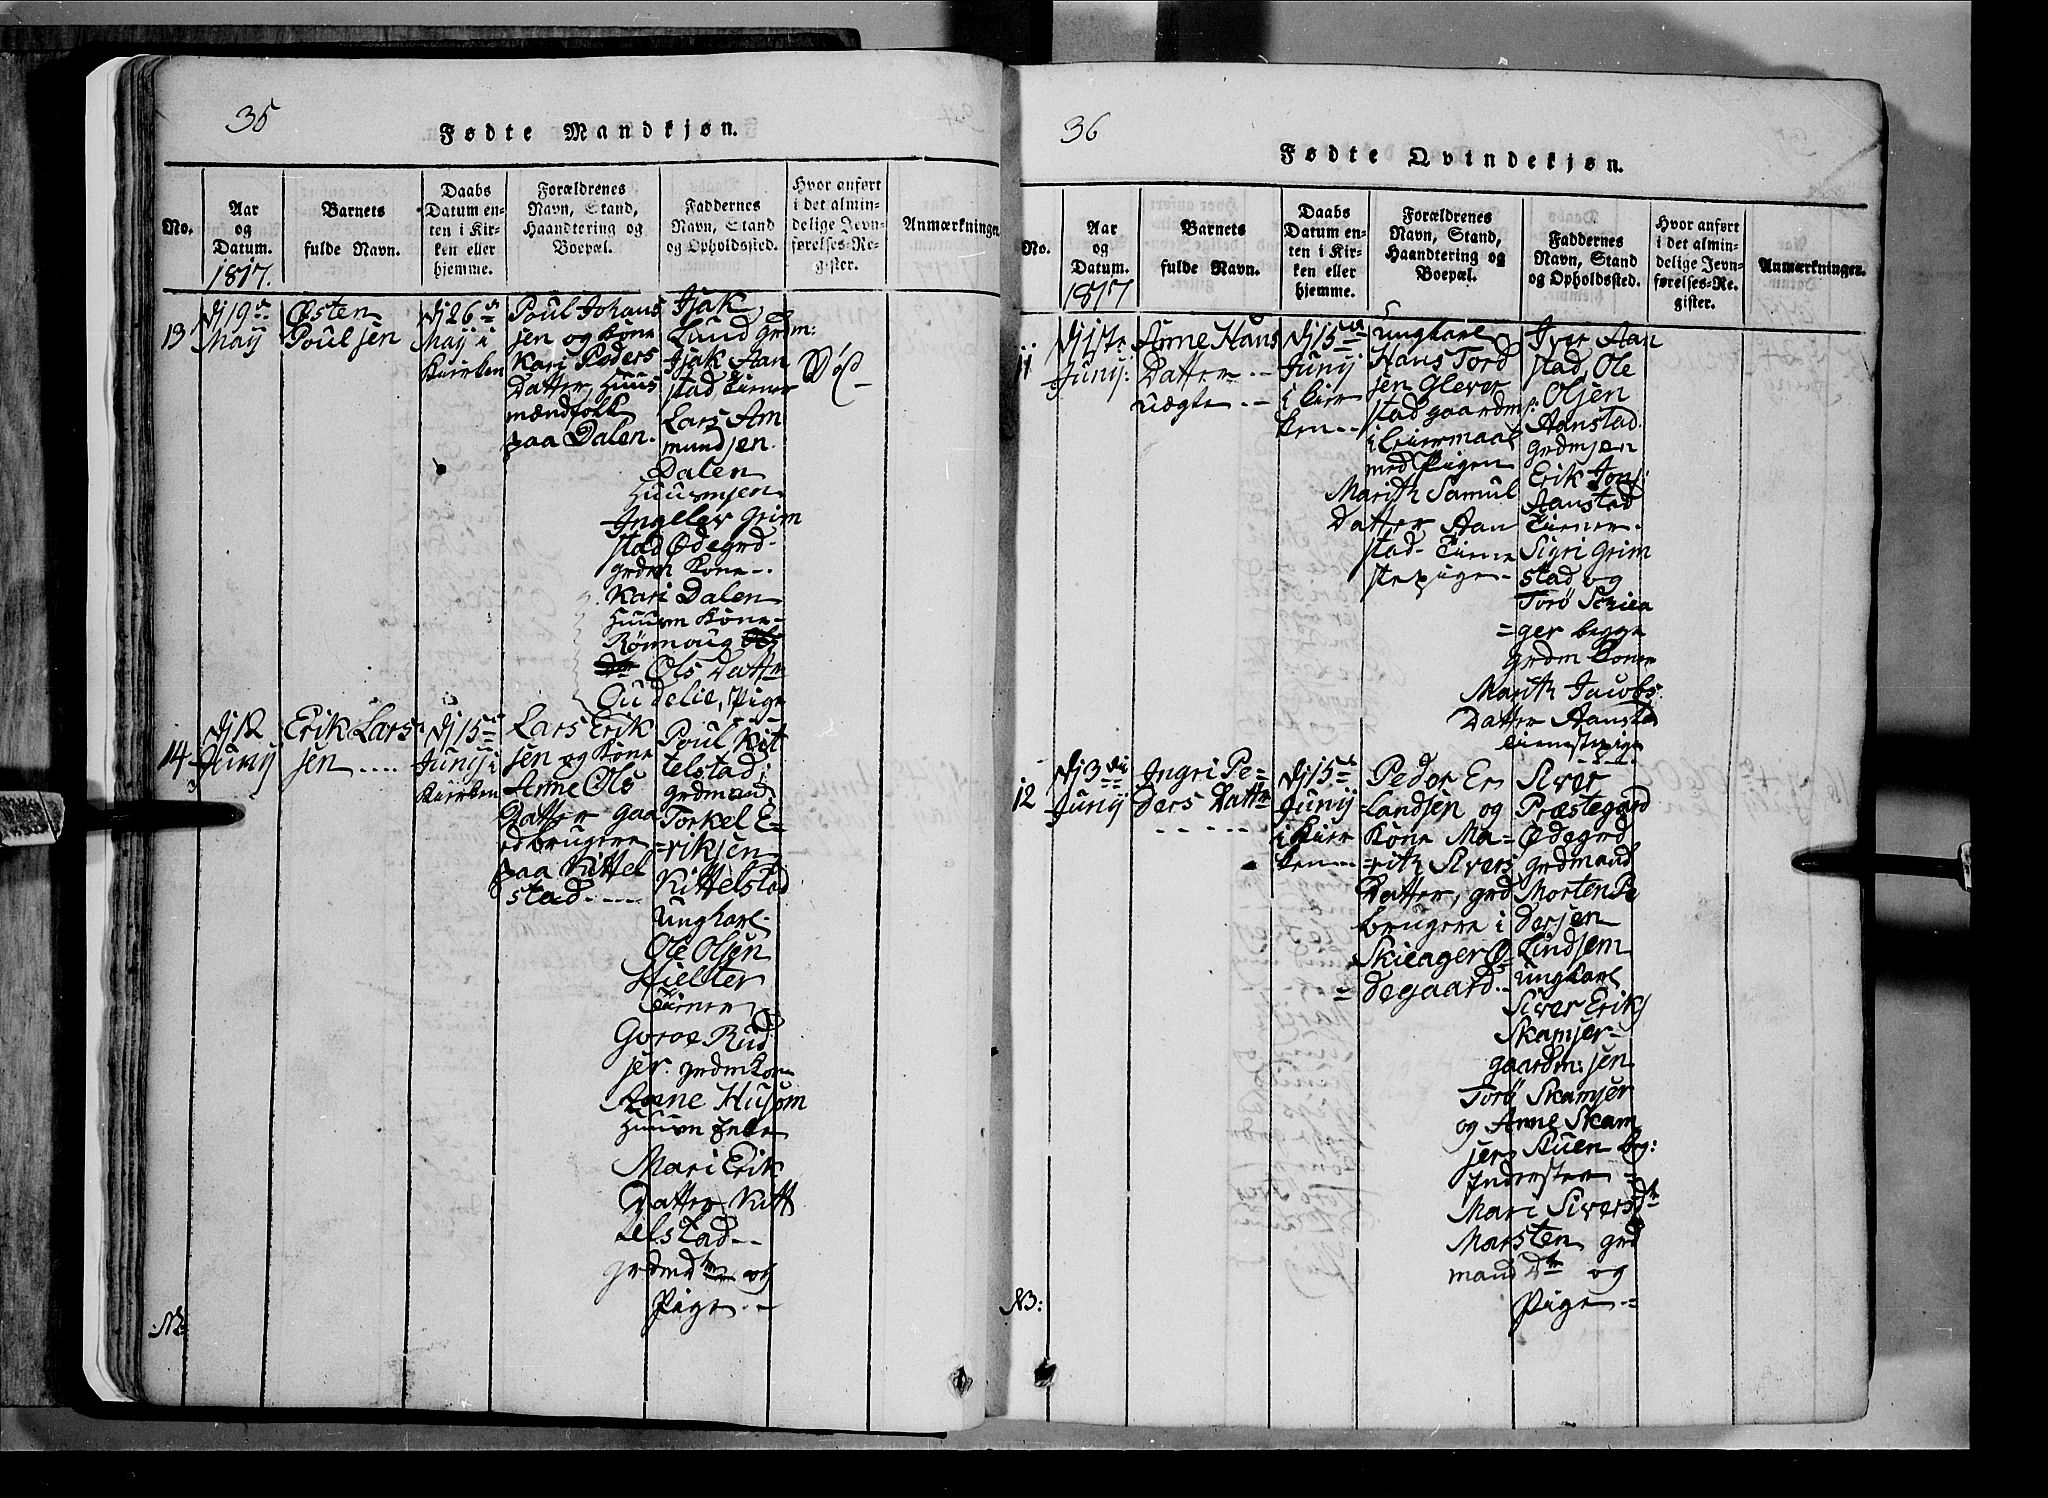 35
Fødte Mandkjøn.
No.
Aar
og
Datum.
1817.
Barnets
fulde Navn.
Daabs
Datum en-
ten i Kir-
ken eller
hjemme.
Forældrenes
Navn, Stand,
Haandtering og
Boepæl.
Faddernes
Navn, Stand
og Opholdssted.
Hvor anført
i det almin-
delige Jevn-
førelses-Re-
gister.
Anmærkninger.
13
Dj 19de
Maij
Østen
Poulsen
Dj 26de
Maij i
Kirken
Poul Johans
sen og Kone
Kari Peders
Datter, Huus
mændfolk
paa Dalen.
Isak
Lund grdm:
Isak Aan
stad, Tiener
Lars Am
mundsen
Dalen
Huusmsen
Ingelev Grim
stad Ødegrd-
grdm Kone-.
Kari Dalen
Huusm Kone-
Rönnoug
Ols Datter
Oudelie, Pige
Død
14
Dj 12
Junij
Erik Lars
sen ....
Dj 15de
Junij i
Kirken
Lars Erik
sen og Kone
Anne Ols
Datter gaa
rdbrugere
paa Kittel
stad.----
Poul Kit
telstad,
grdmand
Torkel E=
=riksen
Kittelstad
ungkarl-
Ole Olsen
Hielter
Tiener
Goroe Rud
ser. grdmkone
Anne Husom
Huusm Enke
Mari Erik
Datter Kitt
elstad--
grdmdtr og
Pige.-
36
Fødte Qvindekjøn.
No.
Aar
og
Datum.
1817
Barnets
fulde Navn.
Daabs
Datum en-
ten i Kir-
ken eller
hjemme.
Forældrenes
Navn, Stand,
Haandtering og
Boepæl.
Faddernes
Navn, Stand
og Opholdssted.
Hvor anført
i det almin-
delige Jevn-
førelses-Re-
gister.
Anmærkninger.
11
Dj 1ste
Junij:
Anne Hans
Datter --
uægte .-
Dj 15de
Junij
i Kirr
ken--
ungkarl
Hans Tord
sen Glever
stad gaardm
i Leiermaal
med Pigen
Marith Samul
Datter Aan
stad- Tiene
stepige-
Iver Aan
stad, Ole
Olsen
Aanstad.
grdmsen
Erik Jons:
Aanstad
Tiener.
Sigri Grim
stad og
Torø Skiea
=ger begge
grdm Koner
Marith Jacobs
Datter Aansta
tienestpige
12
Dj 3die
Junij
Ingri Pe=
ders Datter
Dj 15de
Junij
i Kirr
ken--
Peder Er
landsen og
Kone Ma=
=rith Sivers
Datter, grd
brugere i
Skieager Ø=
=degaard.-
Siver
Præstegard
Ødegrd
grdmand
Morten Pe
dersen
Lindsem
ungkarl
Siver Eriks
Skamser-
gaardm: sen
Torø Skamser
og Anne Skam
ser Auen beg:
Inderster -
Mari Sivers dtr
Marsten grd
mand Dtr og
Pige-=
NB: